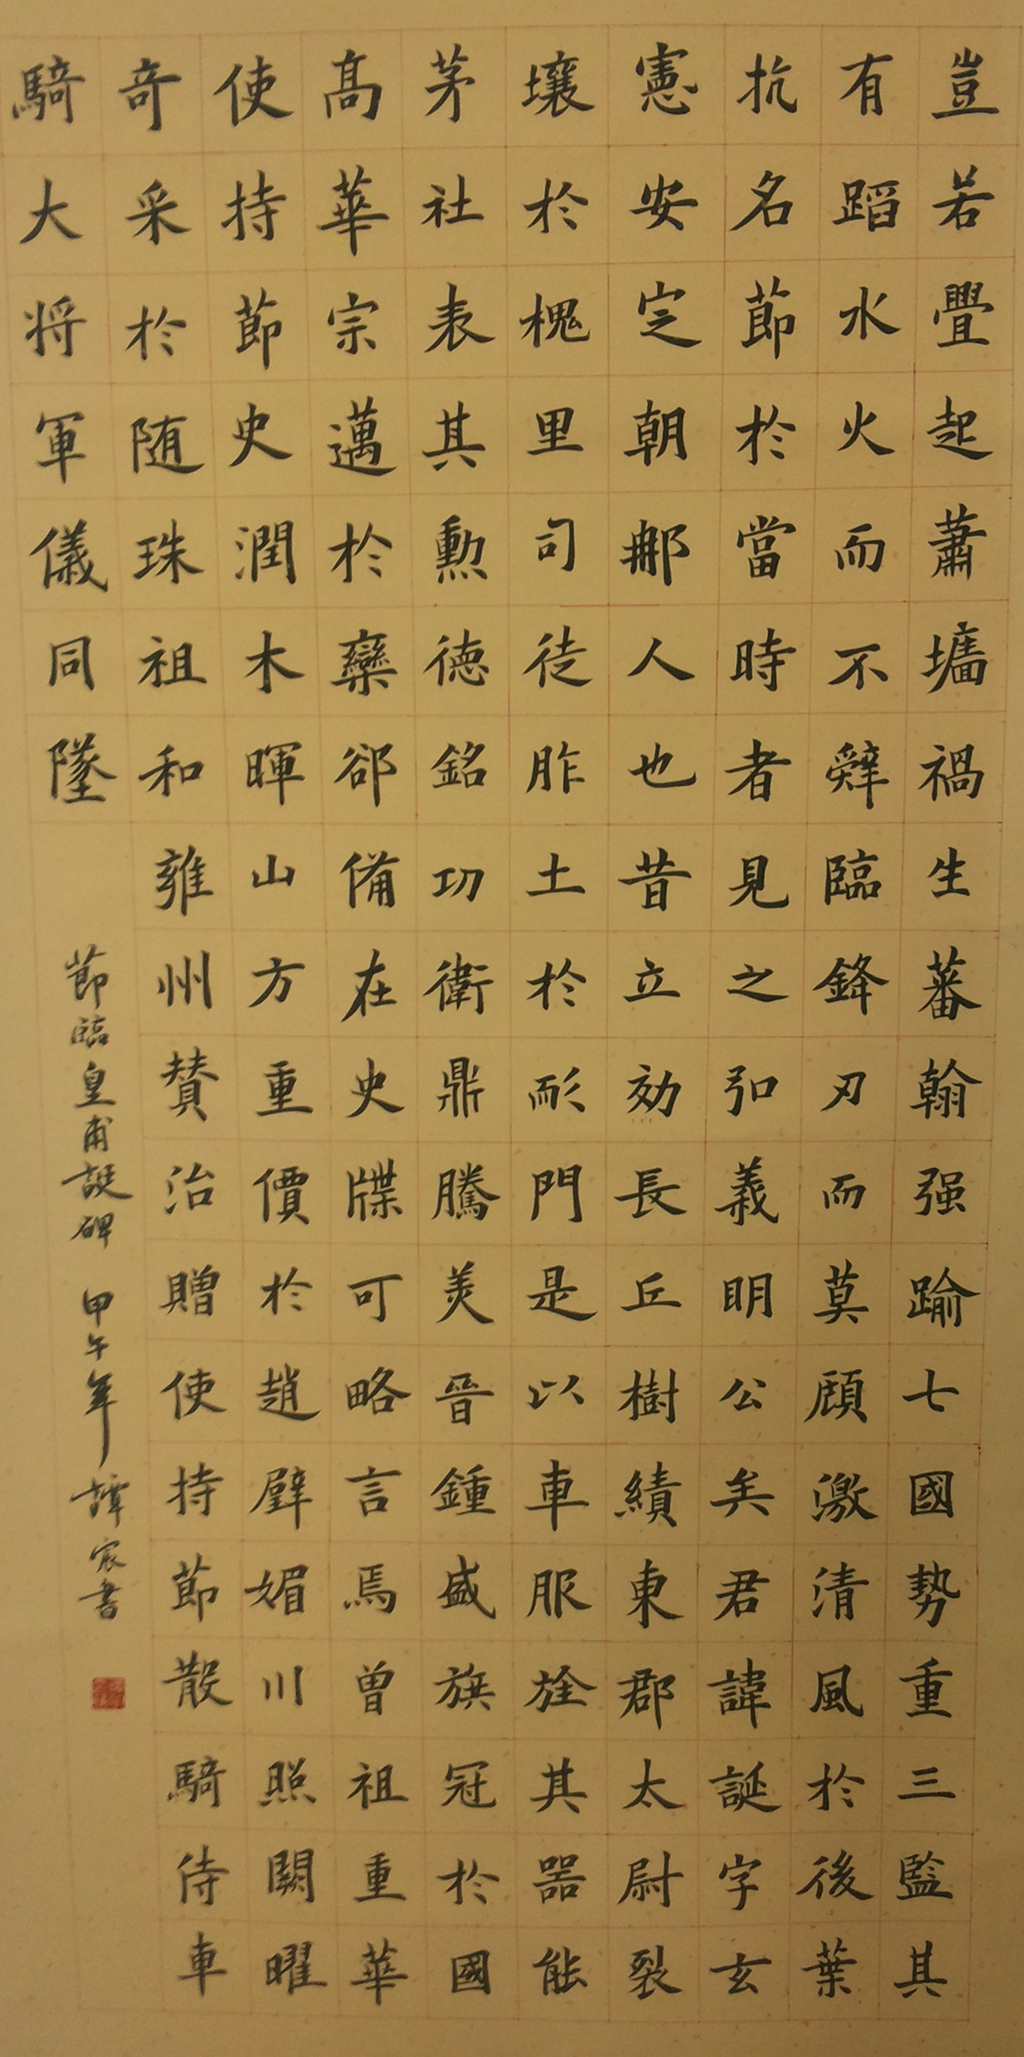 豈若舋起蕭墻禍生蕃翰强踰七國勢重三監其
有蹈水火而不辤臨鋒刃而莫顧激清風於後葉
抗名節於當時者見之弘義明公矣君諱誕字玄
憲安定朝那人也昔立効長丘樹績東郡太尉裂
壤於槐里司徒胙土於耏門是以車服旌其器能
茅社表其勲德銘功衛鼎騰美晉鍾盛族冠於國
高華宗邁於欒郤俻在史牒可略言焉曾祖重華
使持節史潤木暉山方重價於趙璧媚川照闕曜
奇采於随珠祖和雍州賛治贈使持節散騎侍車
騎大将軍儀同墜
節臨皇甫誕碑 甲午年 譚宸書